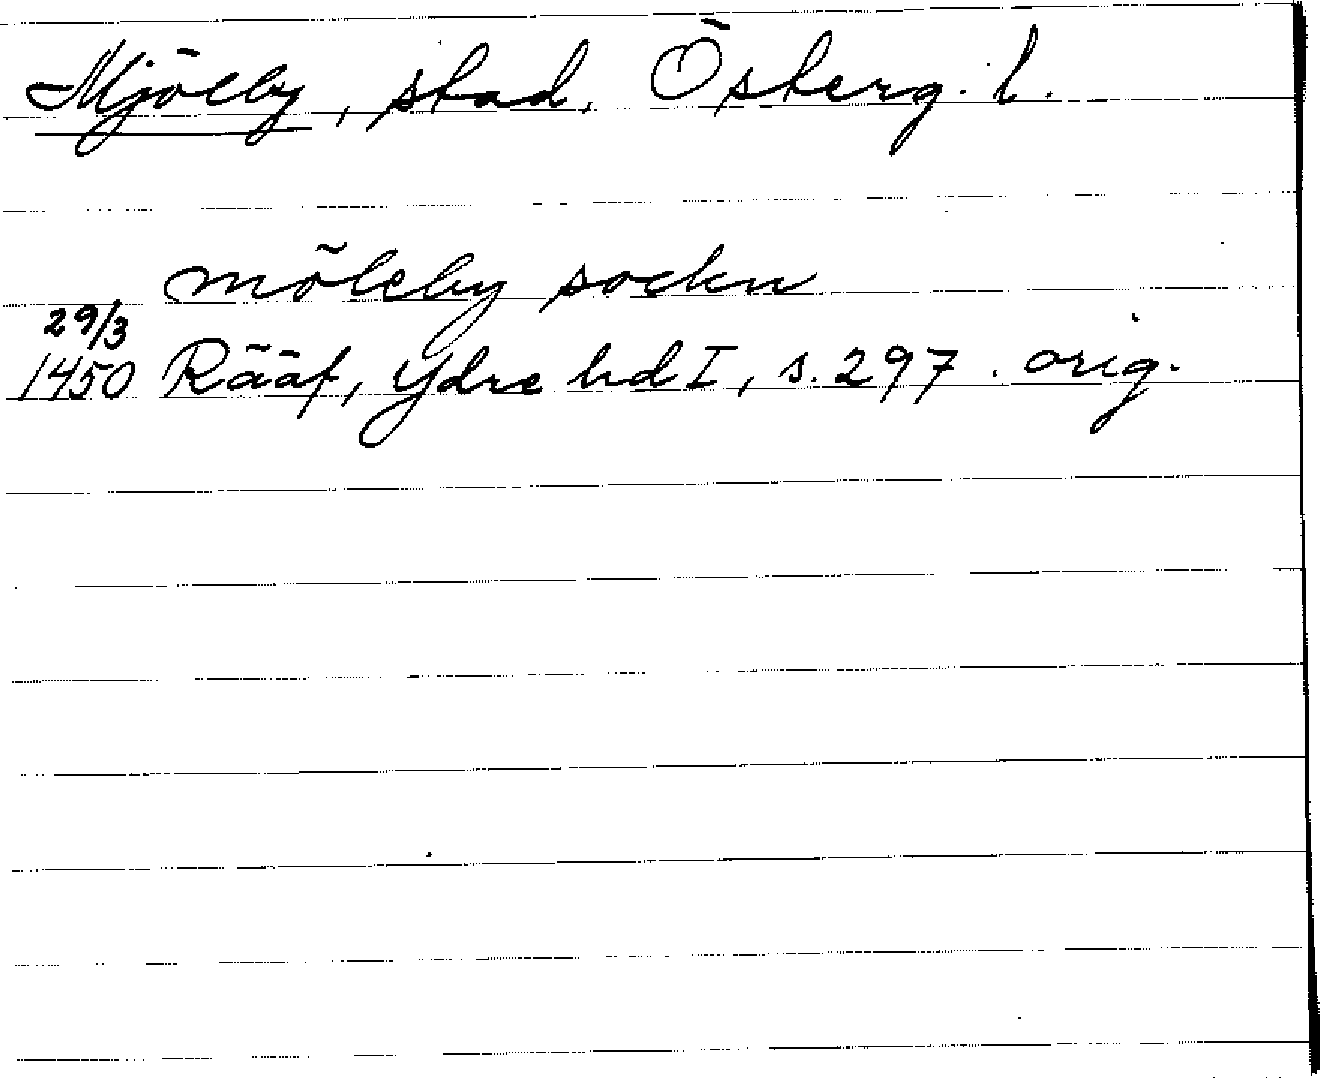 Mjölby, stad, Österg. l.
möleby sockn
29/3
1450 Rääf, Ydre hd I, s. 297. orig.